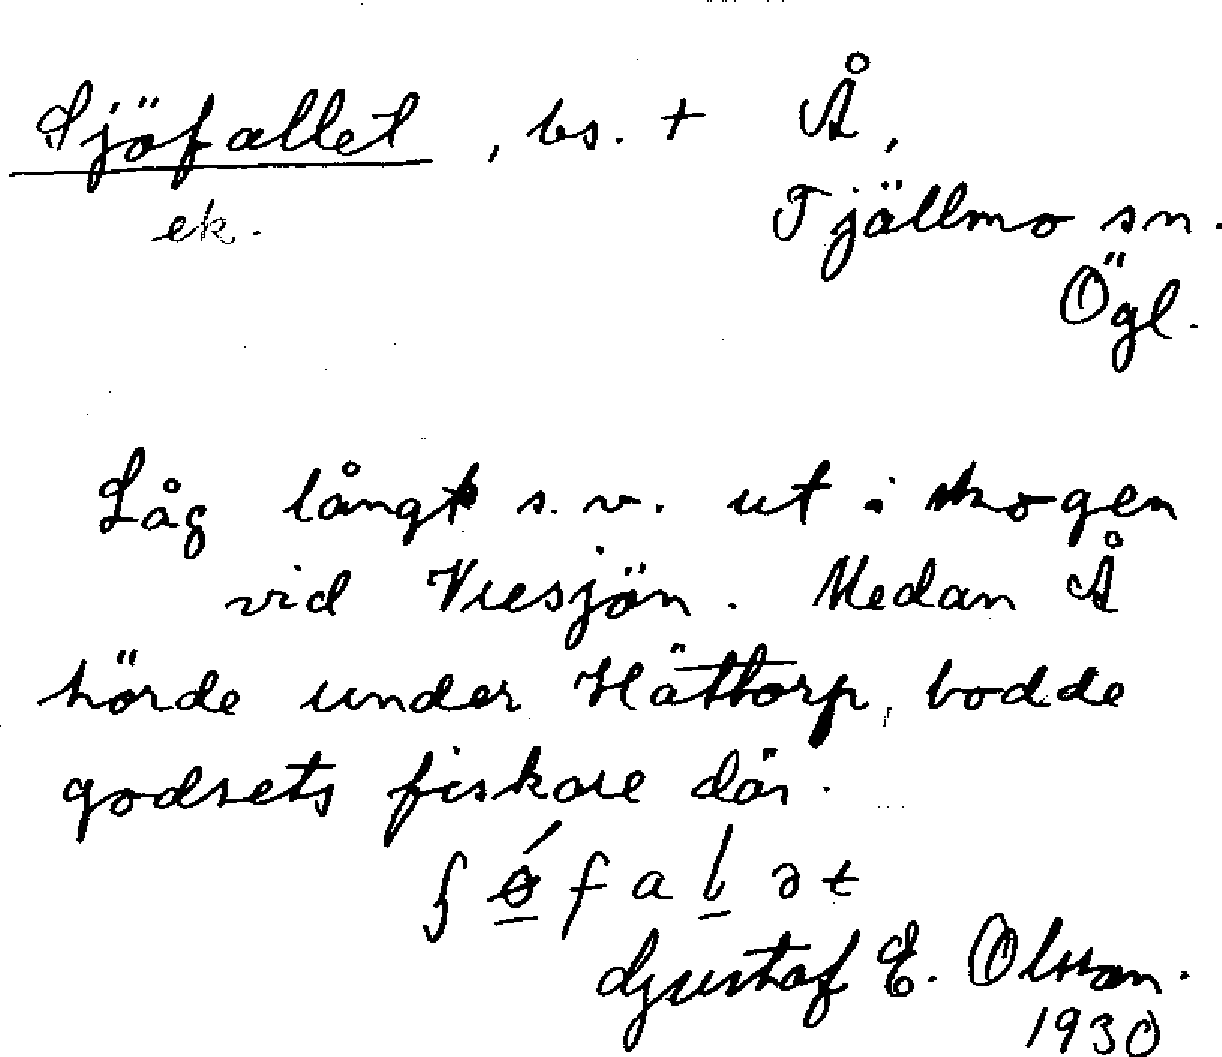 Sjöfallet, bs. + Å,
ek. Tjällmo sn.
Ögl.
Låg långt s.v. ut i skogen
vid Viesjön. Medan Å
hörde under Hättorp, bodde
godsets fiskare där.
Gustaf E. Olsson.
1930